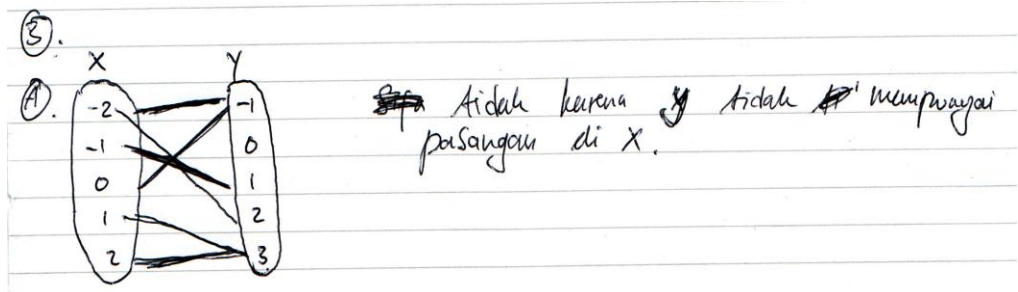 3.
X Y
A.
-2 -1
-1 0
0 1
1 2
2 3
tidak karena y tidak mempunyai
pasangan di X.